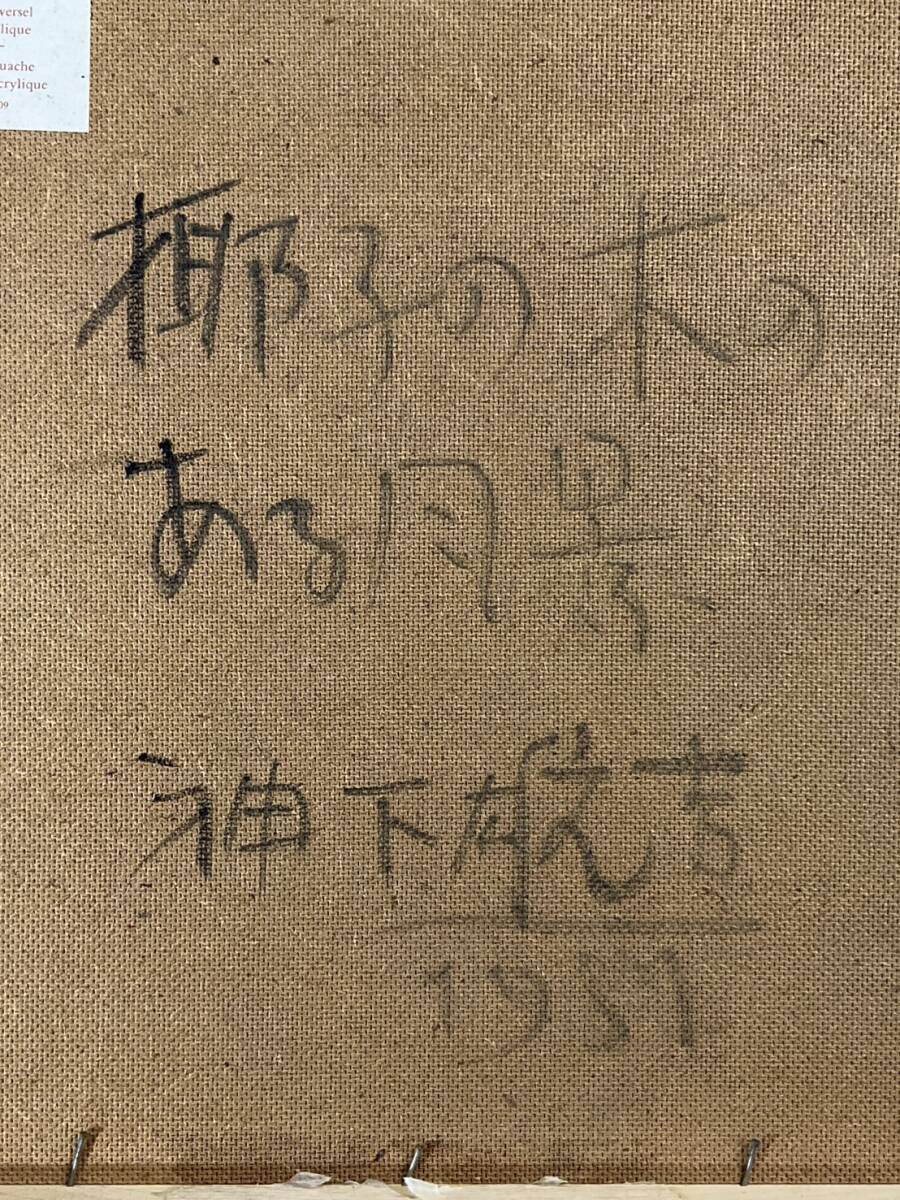 versel
lique
uache
crylique
09
椰子の木の
ある風景
神下雄吉